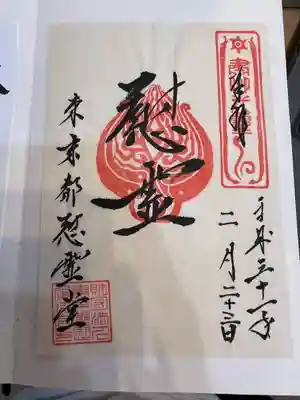 奉拝
平成三十一年
二月二十三日
慰霊
東京都慰霊堂